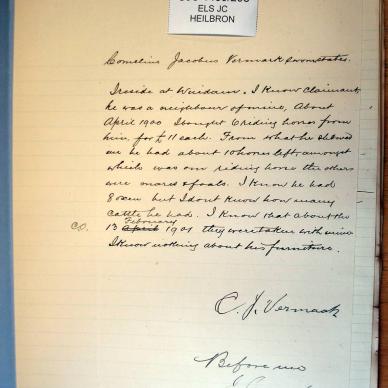 ELS JC
HEILBRON
Cornelius Jacobus Vermaak sworn states.
I reside at Weidam. I know claimant
he was a neighbour of mine, About
April 1900 I bought 6 riding horses from
him for £11 each. From what he shewed
me he had about 10 horses left, amongst
which was one riding horse the others
were mares & foals. I know he had
8 oxen but I dont know how many
cattle he had. I know that about the
February
CO. 13 April 1901 they were taken with mine
I know nothing about his furniture.
C. J. Vermaak
Before me